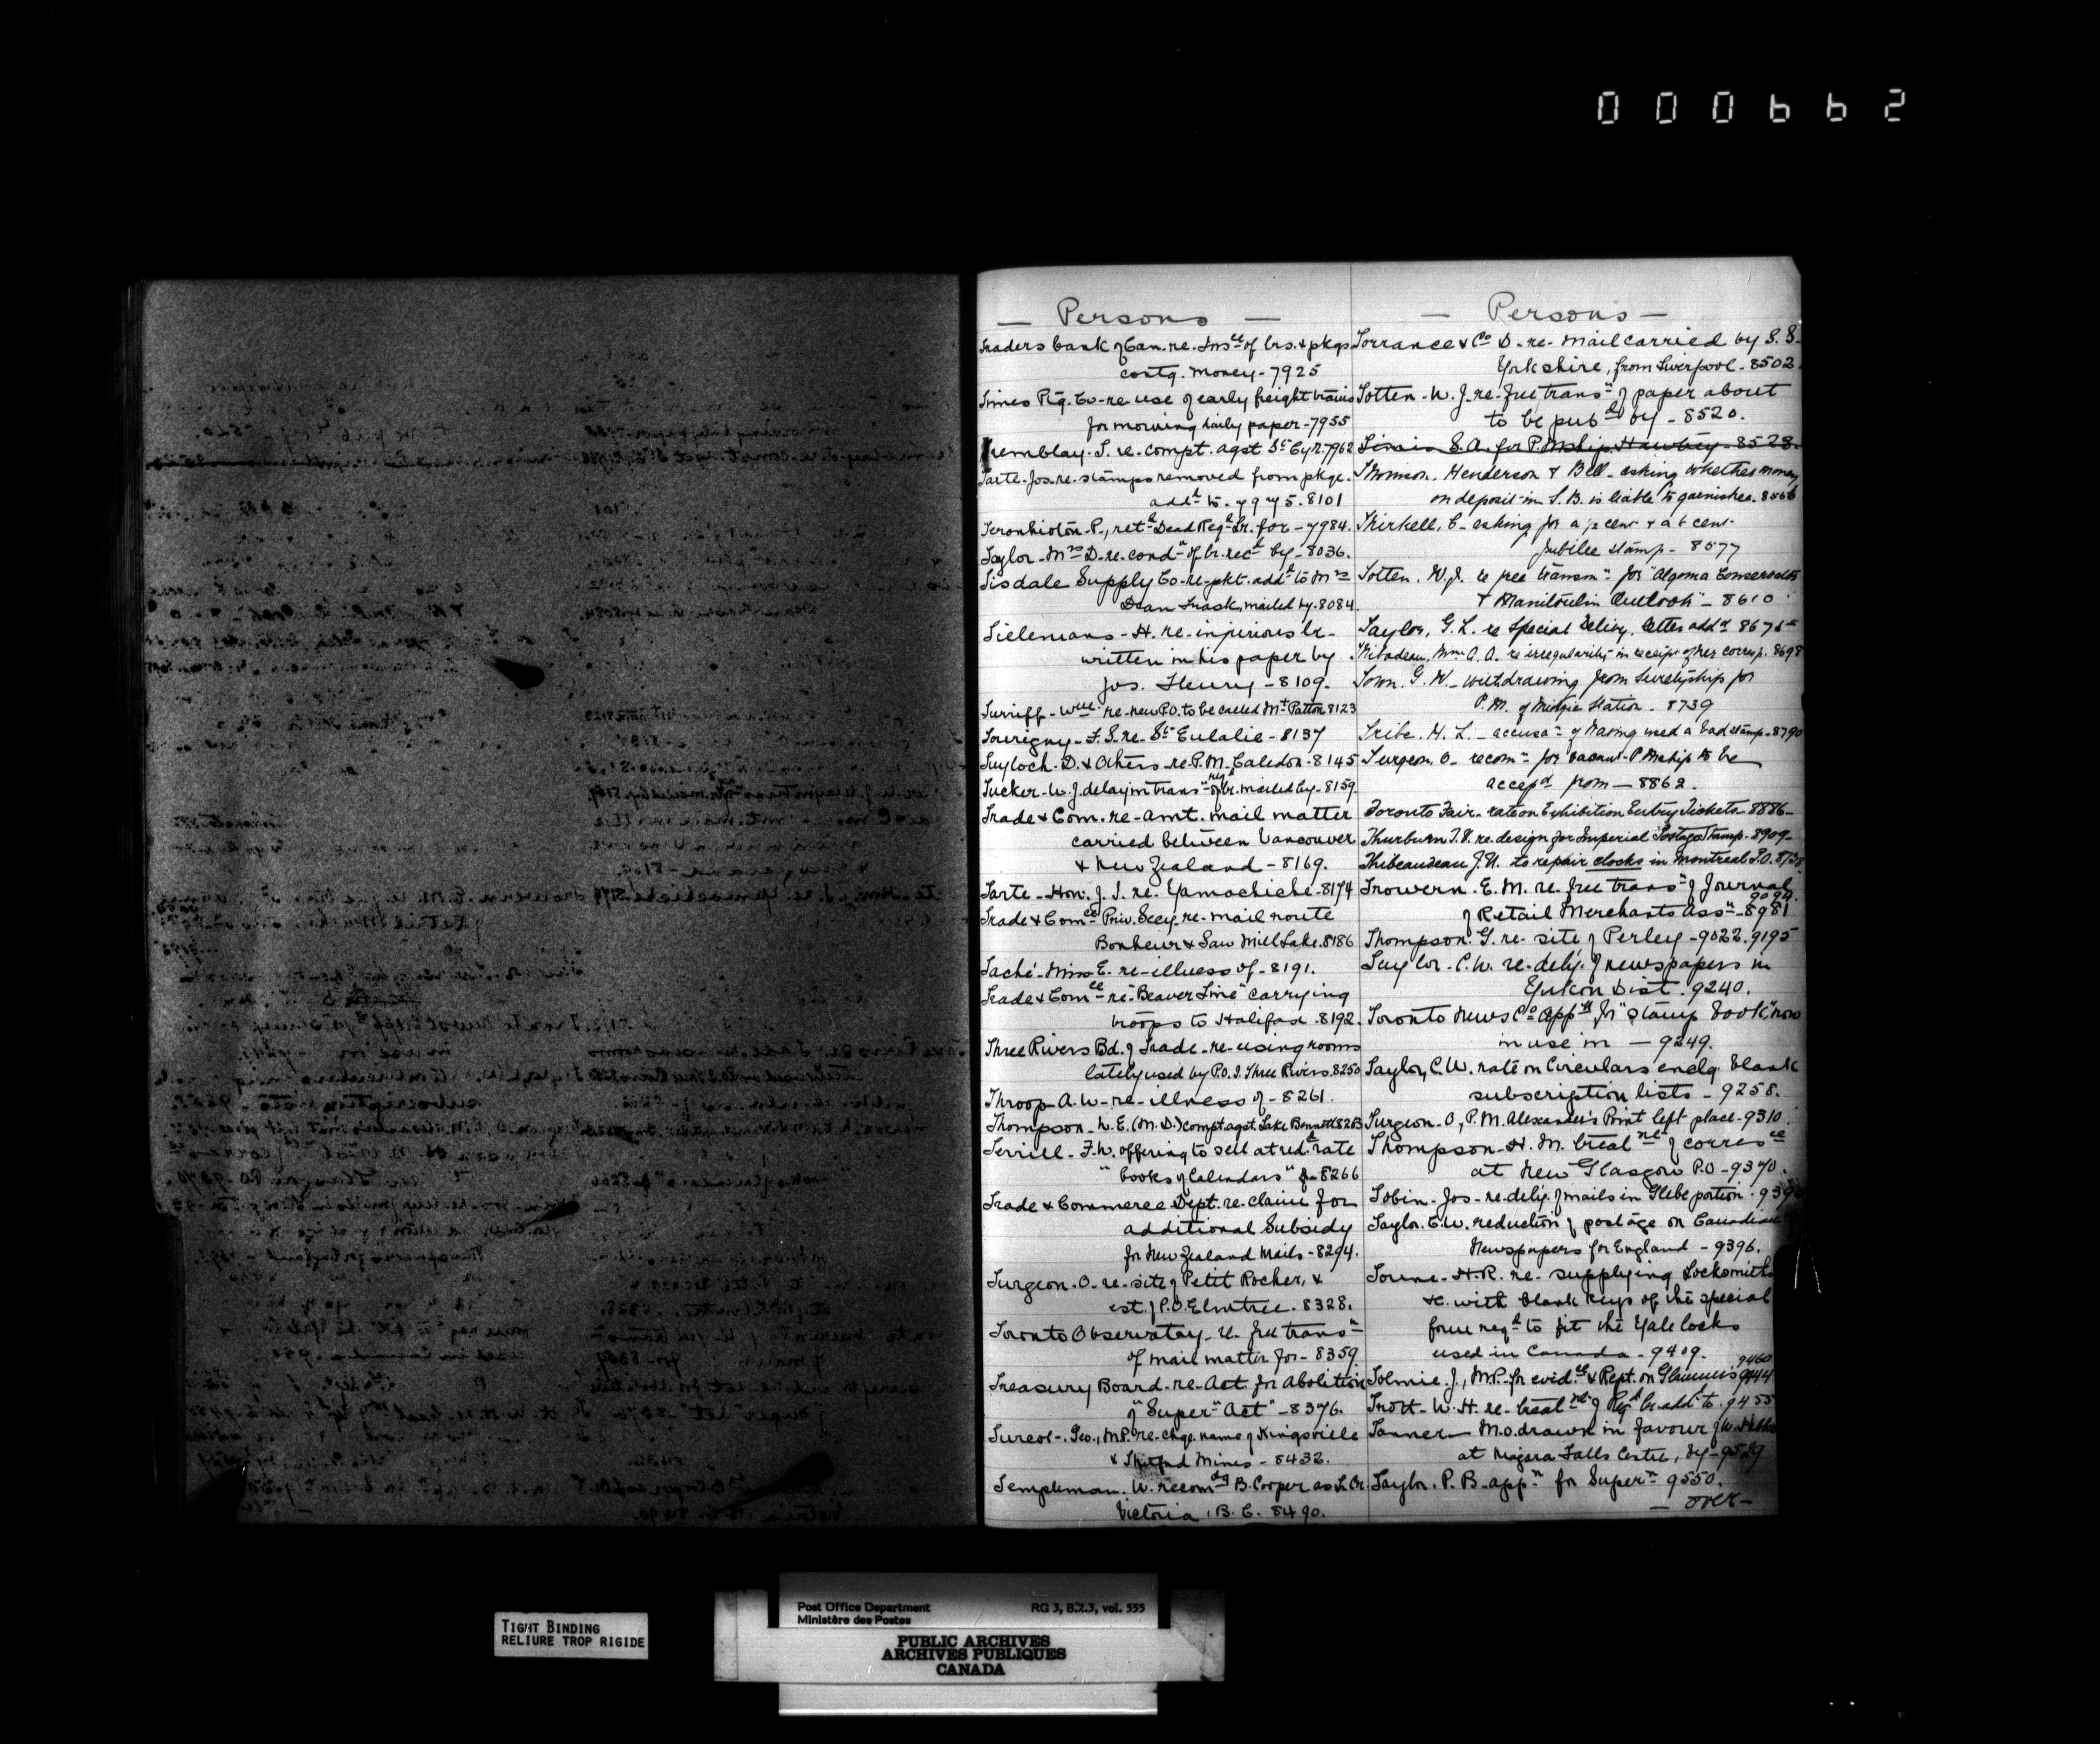 000662
— Persons —
Traders bank of Can. re. Ins ce of lrs. & pkgs
contg. money - 7925
Times Ptg. Co - re use of early freight trains
for morning daily paper - 7955
Tremblay. T. re. compt. agst St Cyr. 7962
Tarte. Jos. re. stamps removed from pkge.
add d to. 7975. 8101
P., ret d Dead Reg d Lr. for - 7984.
Taylor - Mrs D. re. cond n of lr. rec d by - 8036.
Tisdale Supply Co - re - pkt. add d to Mrs
Dean Trask, mailed by. 8084.
Tielemans - H. re - injurious lr -
written in his paper by
Jos. Fleury - 8109.
Turriff - Wm re - new P.O. to be called Mt Patton 8123
Tourigny - F. S. re - Ste Eulalie - 8137
D. & Others - re. P.M. Caledon - 8145
Tucker - W. J. delay in trans n of reg d lr. mailed by - 8159.
Trade & Com. re - amt. mail matter
carried between Vancouver
& New Zealand - 8169.
Tarte - Hon. J. I. re - Yamachiche - 8174
Trade & Com ce Priv. Secy. re - mail route
Bonheur & Saw Mill Lake. 8186
Taché - Miss E. re - illness of - 8191.
Trade & Com ce re "Beaver Line" carrying
troops to Halifax - 8192.
Three Rivers Bd. of Trade - re - using rooms
lately used by P.O. I. Three Rivers. 8250
Throop - A. W - re - illness of - 8261.
Thompson - W. E. (M. D.) compt. agst. Lake Bennett
Terrill - F. W. offering to sell at red d rate
"books of Calendars" 8266
Trade & Commerce Dept. re - claim for
additional Subsidy
for New Zealand Mails - 8294.
Turgeon. O. re - site of Petit Rocher, &
est. of P.O. Elmtree - 8328.
Toronto Observatory - re. free trans n
of mail matter for - 8359.
Treasury Board - re - Act for Abolition
of "Super n Act" - 8376.
Turcot - Geo., M.P. re - chge. name of Kingsville
& Thetford Mines - 8432.
Templeman. W. recom dg B. Cooper as L. Cr.
Victoria, B. C. 8490.
— Persons —
Torrance & Co D. re - Mail carried by S. S.
Yorkshire, from Liverpool - 8502.
Totten - W. J. re - free trans n of paper about
to be pub d by - 8520.
S. A. for P. Mship. Hawtrey - 8523.
Thomson, Henderson & Bell - asking whether money
on deposit in S. B. is liable to garnishee. 8556
Thirkell, E - asking for a ½ cent & a 6 cent
Jubilee stamp - 8577
Totten. W. J. re free transm n for "Algoma Conservator
& Manitoulin Outlook" - 8610
Taylor, G. L. re Special Delivy. letter add d
Thibadeau, Mme A. A. re irregularity in receipt of her corresp. 8698
Town. G. W. - withdrawing from Suretyship for
P. M. of Midgic Station - 8739
Tribe. H. L. - accusa n of having used a bad stamp - 8790
Turgeon. O - recom n for vacant P Mship to be
accep d from — 8862.
Toronto Fair - rate on Exhibition Entry Tickets - 8886 -
Thurburn re. design for Imperial Postage Stamp - 8909 -
Thibeaudeau to repair clocks in Montreal P.O.
Trowern. E. M. re. free trans n of Journal
9094.
of Retail Merchants Ass n - 8981
Thompson. G. re - site of Perley - 9022. 9195
Taylor - C. W. re - dely. of newspapers in
Yukon Dist. 9240.
Toronto News Co app n for "stamp book" now
in use in — 9249.
Taylor, C. W. rate on Circulars enclg. blank
subscription lists - 9258.
Turgeon - O, P. M. Alexander's Point left place - 9310.
Thompson - H. M. treat nt of corres ce
at New Glasgow P.O - 9370.
Tobin - Jos - re - dely. of mails in Glebe portion.
Taylor. C. W. reduction of postage on Canadian
Newspapers for England - 9396.
H. R. re - supplying Locksmiths
&c. with blank keys of the special
form req d to fit the Yale locks
used in Canada - 9409.
9460
Tolmie. J., M.P. for evid ce & Rept. on Glammis 9444
Trott - W. H. re - treat nt of Reg d lr. add d to. 9455
Tanner — M.O. drawn in favour of W.
at Niagara Falls Centre, by - 9529
Taylor. P. B. app n for Super n 9550.
— over —
TIGHT BINDING
RELIURE TROP RIGIDE
Post Office Department
Ministère des Postes
RG 3, B.2.3, vol. 555
PUBLIC ARCHIVES
ARCHIVES PUBLIQUES
CANADA